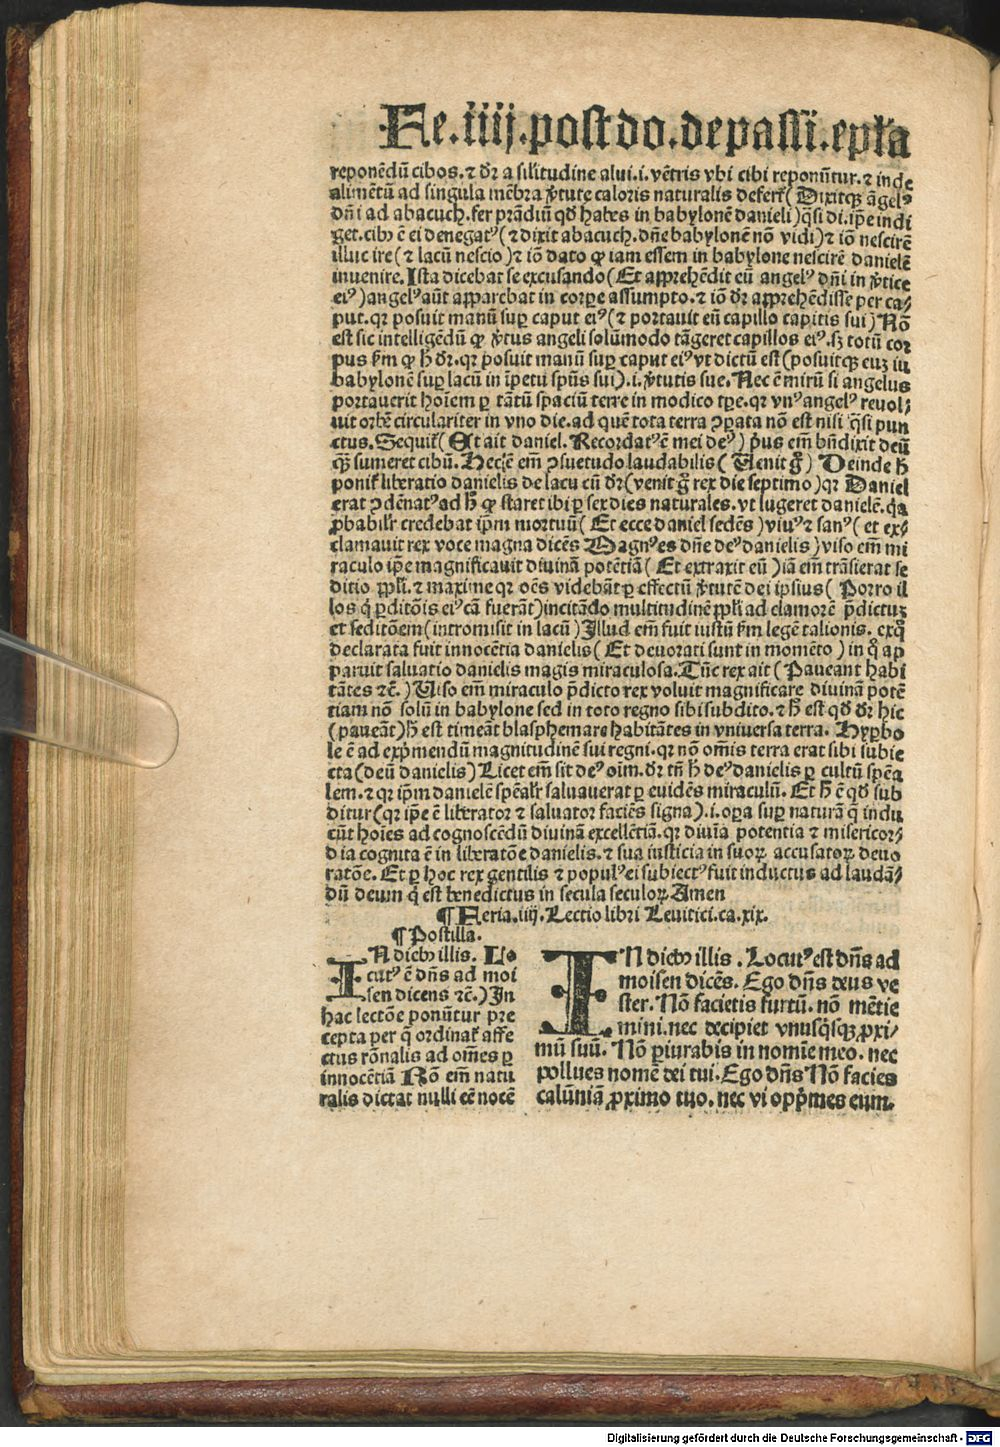 Fe.iiij.post do.de passi.epl̄a
reponēdū cibos.⁊ dr̄ a sil̄itudine alui.i.vētris vbi cibi reponūtur.⁊ inde
alimētū ad singula mēbra v̄tute caloris naturalis defert᷑( Dixitqꝫ āgelꝰ
dn̄i ad abacuch.fer prādiū qd̄ habes in babylonē danieli)q̄si di.ip̄e indi
get.cibꝰ ē ei denegatꝰ(⁊ dixit abacuch.dn̄e babylonē nō vidi)⁊ iō nescirē
illuc ire(⁊ lacū nescio)⁊ iō dato ꝙ iam essem in babylone nescirē danielē
inuenire.Ista dicebat se excusando( Et apprehēdit eū angelꝰ dn̄i in v̄tice
eiꝰ)angelꝰ aūt apparebat in corpꝑe assumpto.⁊ iō dr̄ apprehēdisse per ca⸗
put.qr posuit manū suꝑ caput eiꝰ(⁊ portauit eū capillo capitis sui)Nō
est sic intelligēdū ꝙ v̄tus angeli solūmodo tāgeret capillos eiꝰ.sꝫ totū cor
pus s̄m ꝙ h̄ dr̄.qr posuit manū suꝑ caput eiꝰ vt dictū est(posuitqꝫ euꝫ in
babylonē suꝑ lacū in īpetu spūs sui).i.v̄tutis sue.Nec ē mirū si angelus
portauerit hoīem ꝑ tātū spaciū terre in modico tꝑe.qr vnꝰ angelꝰ reuol⸗
uit orbē circulariter in vno die.ad quē tota terra ꝯꝑata nō est nisi q̄si pun
ctus.Sequit᷑( Et ait daniel. Recordatꝰē mei deꝰ) pꝰus em̄ bn̄dixit deū
qꝫ̄ sumeret cibū. Hec ē em̄ ꝯsuetudo laudabilis( Uenit g̊) Deinde h̄
ponit᷑ liberatio danielis de lacu cū dr̄(venit g̊ rex die septimo)qr Daniel
erat ꝯdēnatꝰ ad h̄ ꝙ staret ibi ꝑ sex dies naturales.vt lugeret danielē.q̄a
ꝓbabilr̄ credebat ip̄m mortuū( Et ecce daniel sedēs)viuꝰ ⁊ sanꝰ( et ex⸗
clamauit rex voce magna dicēs Magnꝰ es dn̄e deꝰ danielis)viso em̄ mi
raculo ip̄e magnificauit diuinā potētiā( Et extraxit eū)iā em̄ trāsierat se
ditio ppl̄i.⁊ maxime qr oēs videbāt ꝑ effectū v̄tutē dei ipsius( Porro il
los q̇ ꝑditōis eiꝰ cā fuerāt)incitādo multitudinē ppl̄i ad clamorē p̄dictuꝫ
et seditōem(intromisit in lacū)Illud em̄ fuit iustū s̄m legē talionis. ex q̊
declarata fuit innocētia danielis( Et deuorati sunt in momēto) in q̊ ap
paruit saluatio danielis magis miraculosa.Tūc rex ait( Paueant habi
tātes ⁊c̄.)Uiso em̄ miraculo p̄dicto rex voluit magnificare diuinā potē
tiam nō solū in babylone sed in toto regno sibi subdito.⁊ h̄ est qd̄ dr̄ hic
(paueāt)h̄ est timeāt blasphemare habitātes in vniuersa terra. Hyꝑbo
le ē ad exp̄mendū magnitudinē sui regni.qr nō om̄is terra erat sibi subie
cta(deū danielis)Licet em̄ sit deꝰ oīm.dr̄ tn̄ h̄ deꝰ danielis ꝑ cultū spēa
lem.⁊ qr ip̄m danielē spēalr̄ saluauerat ꝑ euidēs miraculū. Et h̄ ē qd̄ sub
ditur(qr ip̄e ē liberator ⁊ saluator faciēs signa).i.oꝑa suꝑ naturā q̄ indu
cūt hoīes ad cognoscēdū diuinā excellētiā.qr diuīa potentia ⁊ misericor⸗
dia cognita ē in liberatōe danielis.⁊ sua iusticia in suoꝝ accusatoꝝ deuo
ratōe. Et ꝑ hoc rex gentilis ⁊ populꝰ ei subiectꝰ fuit inductus ad laudā⸗
dū deum q̇ est benedictus in secula seculoꝝ.Amen
¶ Feria.iiij.Lectio libri Leuitici.ca.xix.
¶ Postilla.
IN diebꝰ illis. Lo⸗
cutꝰ ē dn̄s ad moi
sen dicens ⁊c̄.)In
hac lectōe ponūtur pre
cepta per q̄ ordinat᷑ affe
ctus rōnalis ad om̄es ꝑ
innocētiā Nō em̄ natu
ralis dictat nulli eē nocē
IN diebꝰ illis.Locutꝰ est dn̄s ad
moisen dicēs. Ego dn̄s deus ve
ster. Nō facietis furtū. nō mētie
mini.nec decipiet vnusq̇sqꝫ ꝓxi⸗
mū suū. Nō ꝑiurabis in nomīe meo. nec
pollues nomē dei tui.Ego dn̄s Nō facies
calūniā ꝓximo tuo.nec vi opp̄mes eum.
Digitalisierung gefördert durch die Deutsche Forschungsgemeinschaft - DFG